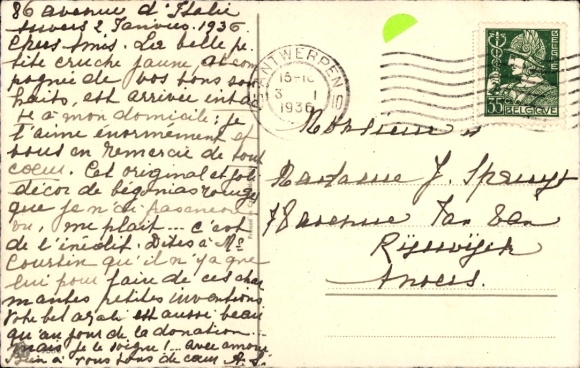 86 avenue d'Italie
Anvers 2 Janvier 1936
Chers Amis. La belle pe-
tite cruche jaune accom
pagnée de vos bons sou
haits, est arrivée intac
te à mon domicile; je
l'aime enormement et
vous en remercie de tout
coeur. Cet original et joli
décor de bégonias rouges
que je n'ai pas encore
vu, me plait... c'est
de l'inédit. Dites à Mr
Courtin qu'il n'y a que
lui pour faire de ces char
mantes petites inventions
Votre bel azalé est aussi beau
qu'au jour de la donation...
mais je le soigne!... avec amour
Bien à vous tous de coeur A. S.
ANTWERPEN
15-16
3 I
1936
BELGIE
35
BELGIQUE
Monsieur &
Madame J. Spruyt
78 avenue Van Den
Rijswijck
Anvers.